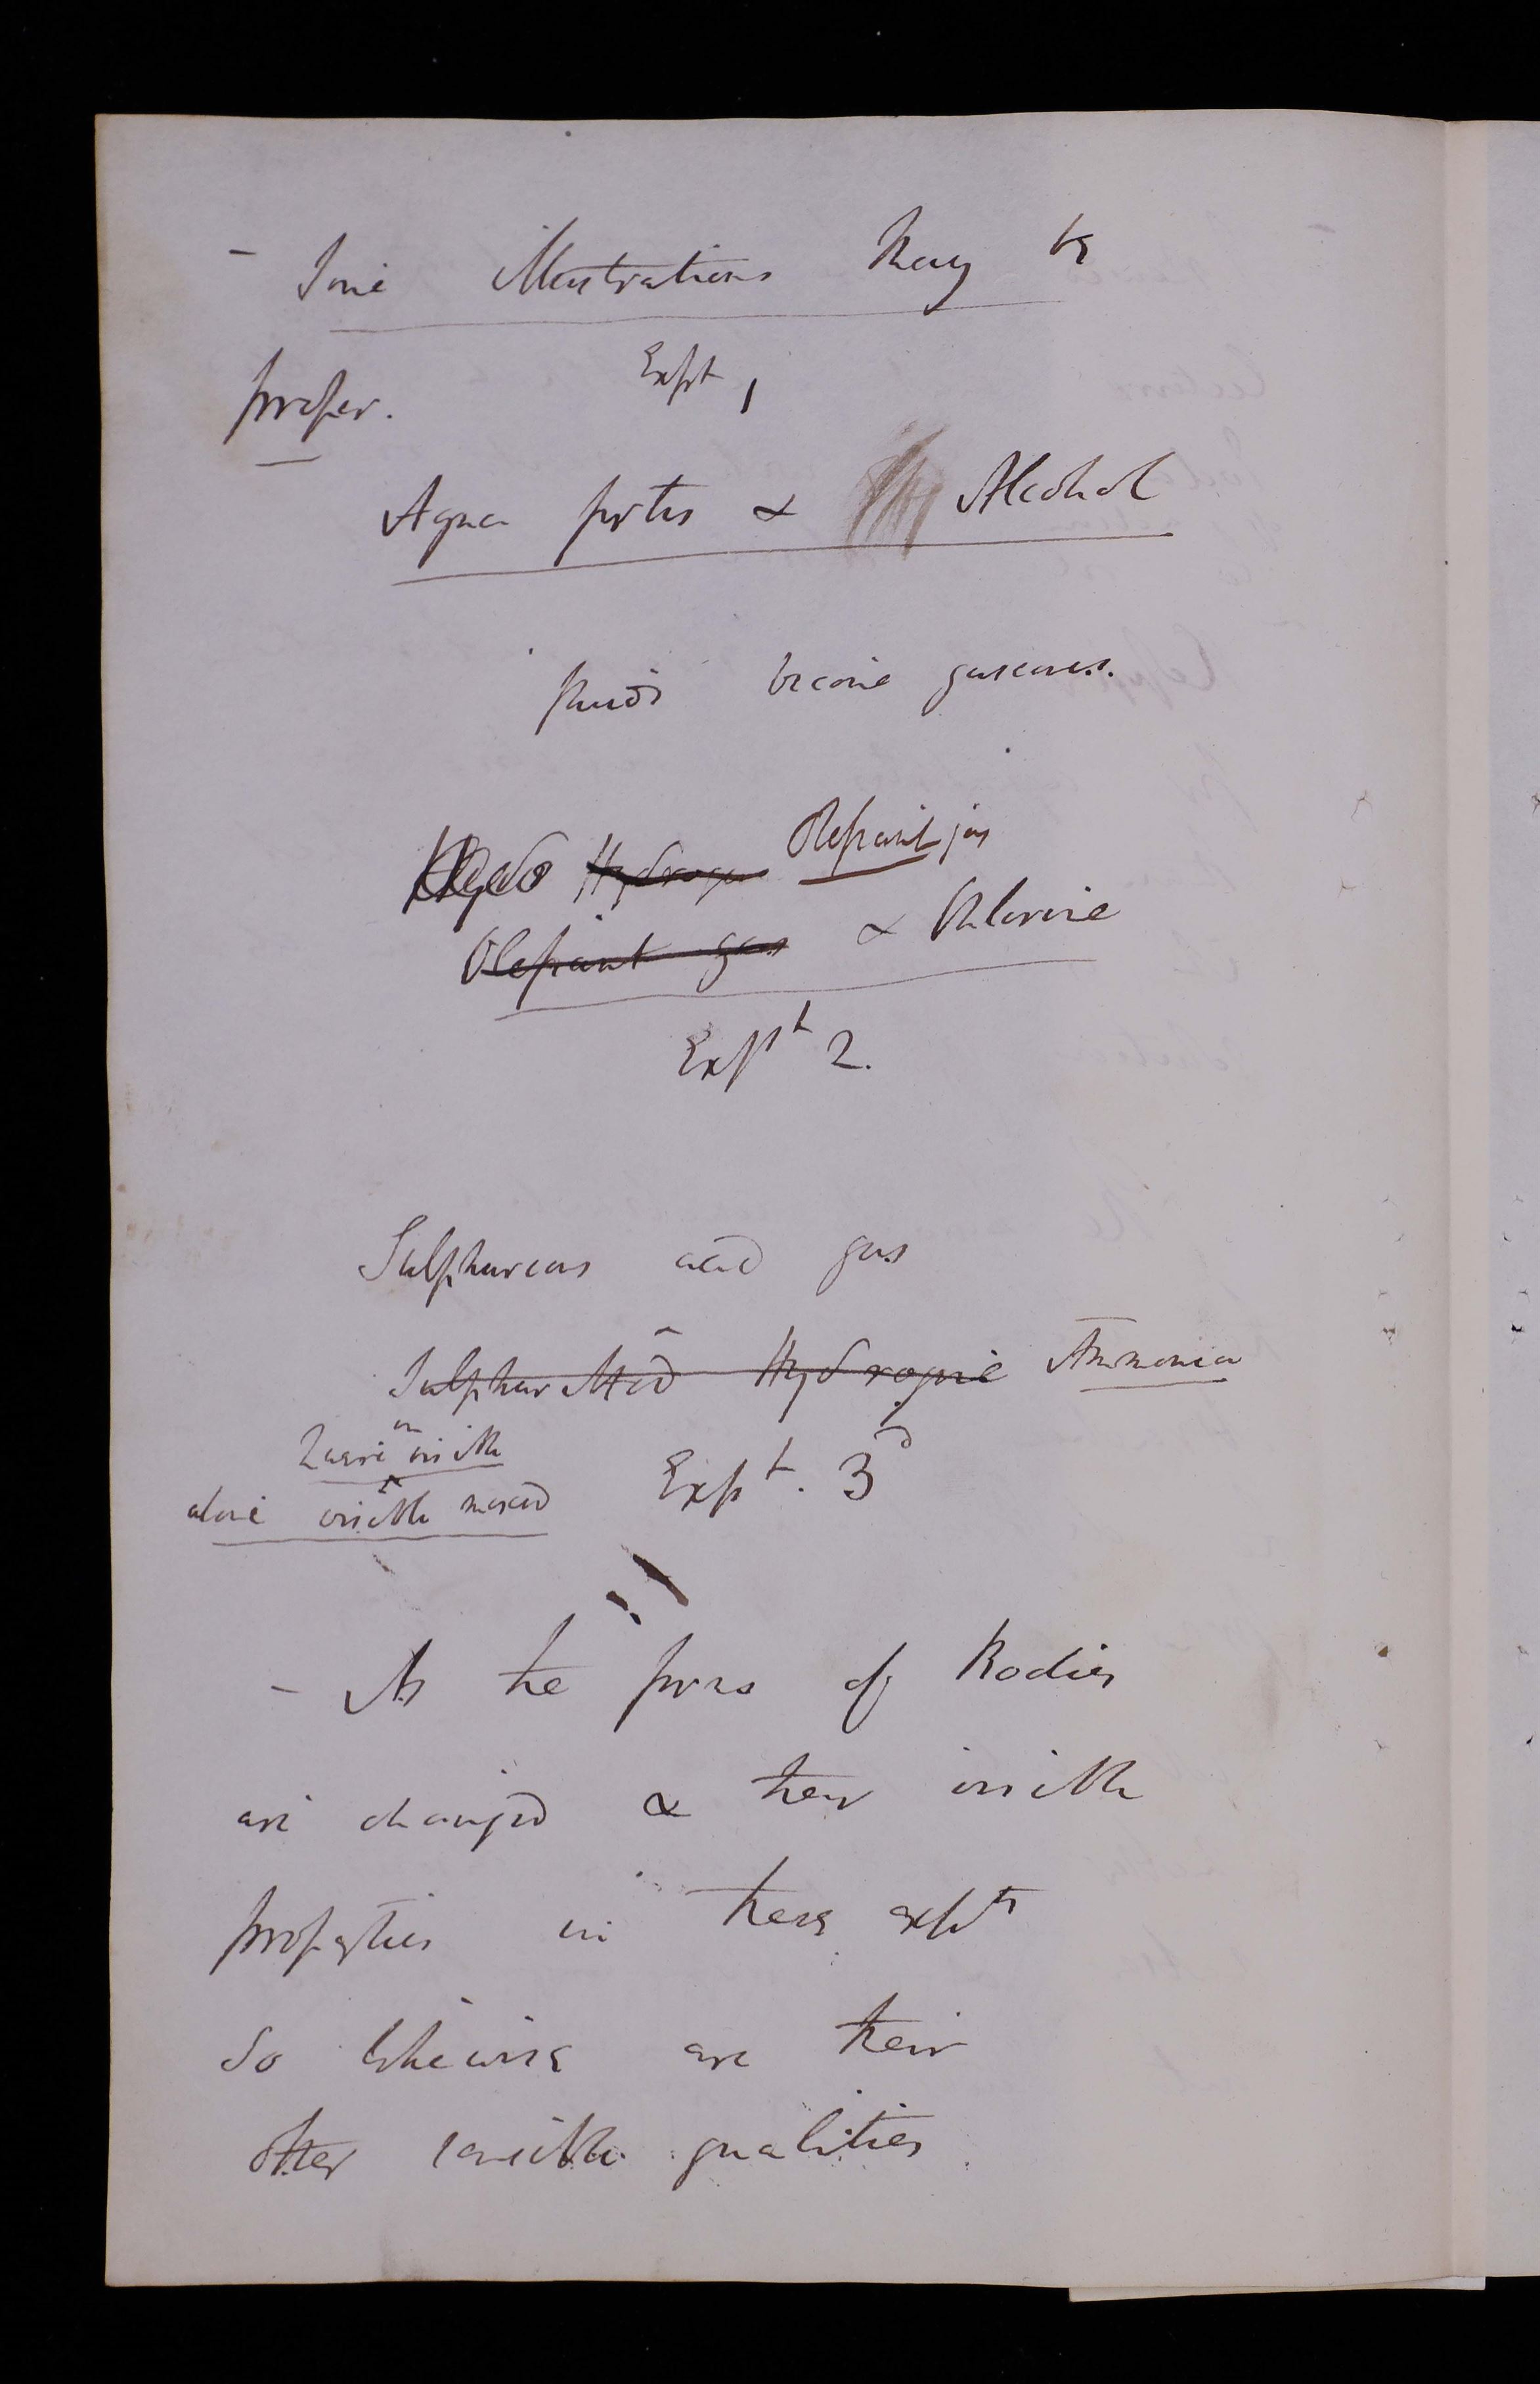 - Some illustrations May be
proper. Expt 1
Aqua fortis & Alcohol
fluids become gaseous.
Hydro Hydrogen Olefiant gas
Olefiant gas & Chlorine
Expt 2.
Sulphureous acid gas
Sulphuretted Hydrogene Ammonia
2 are invisible
alone visible mixed Expt. 3d
- As the forms of Bodies
are changed & their visible
properties in these expts
So likewise are their
other sensible qualities